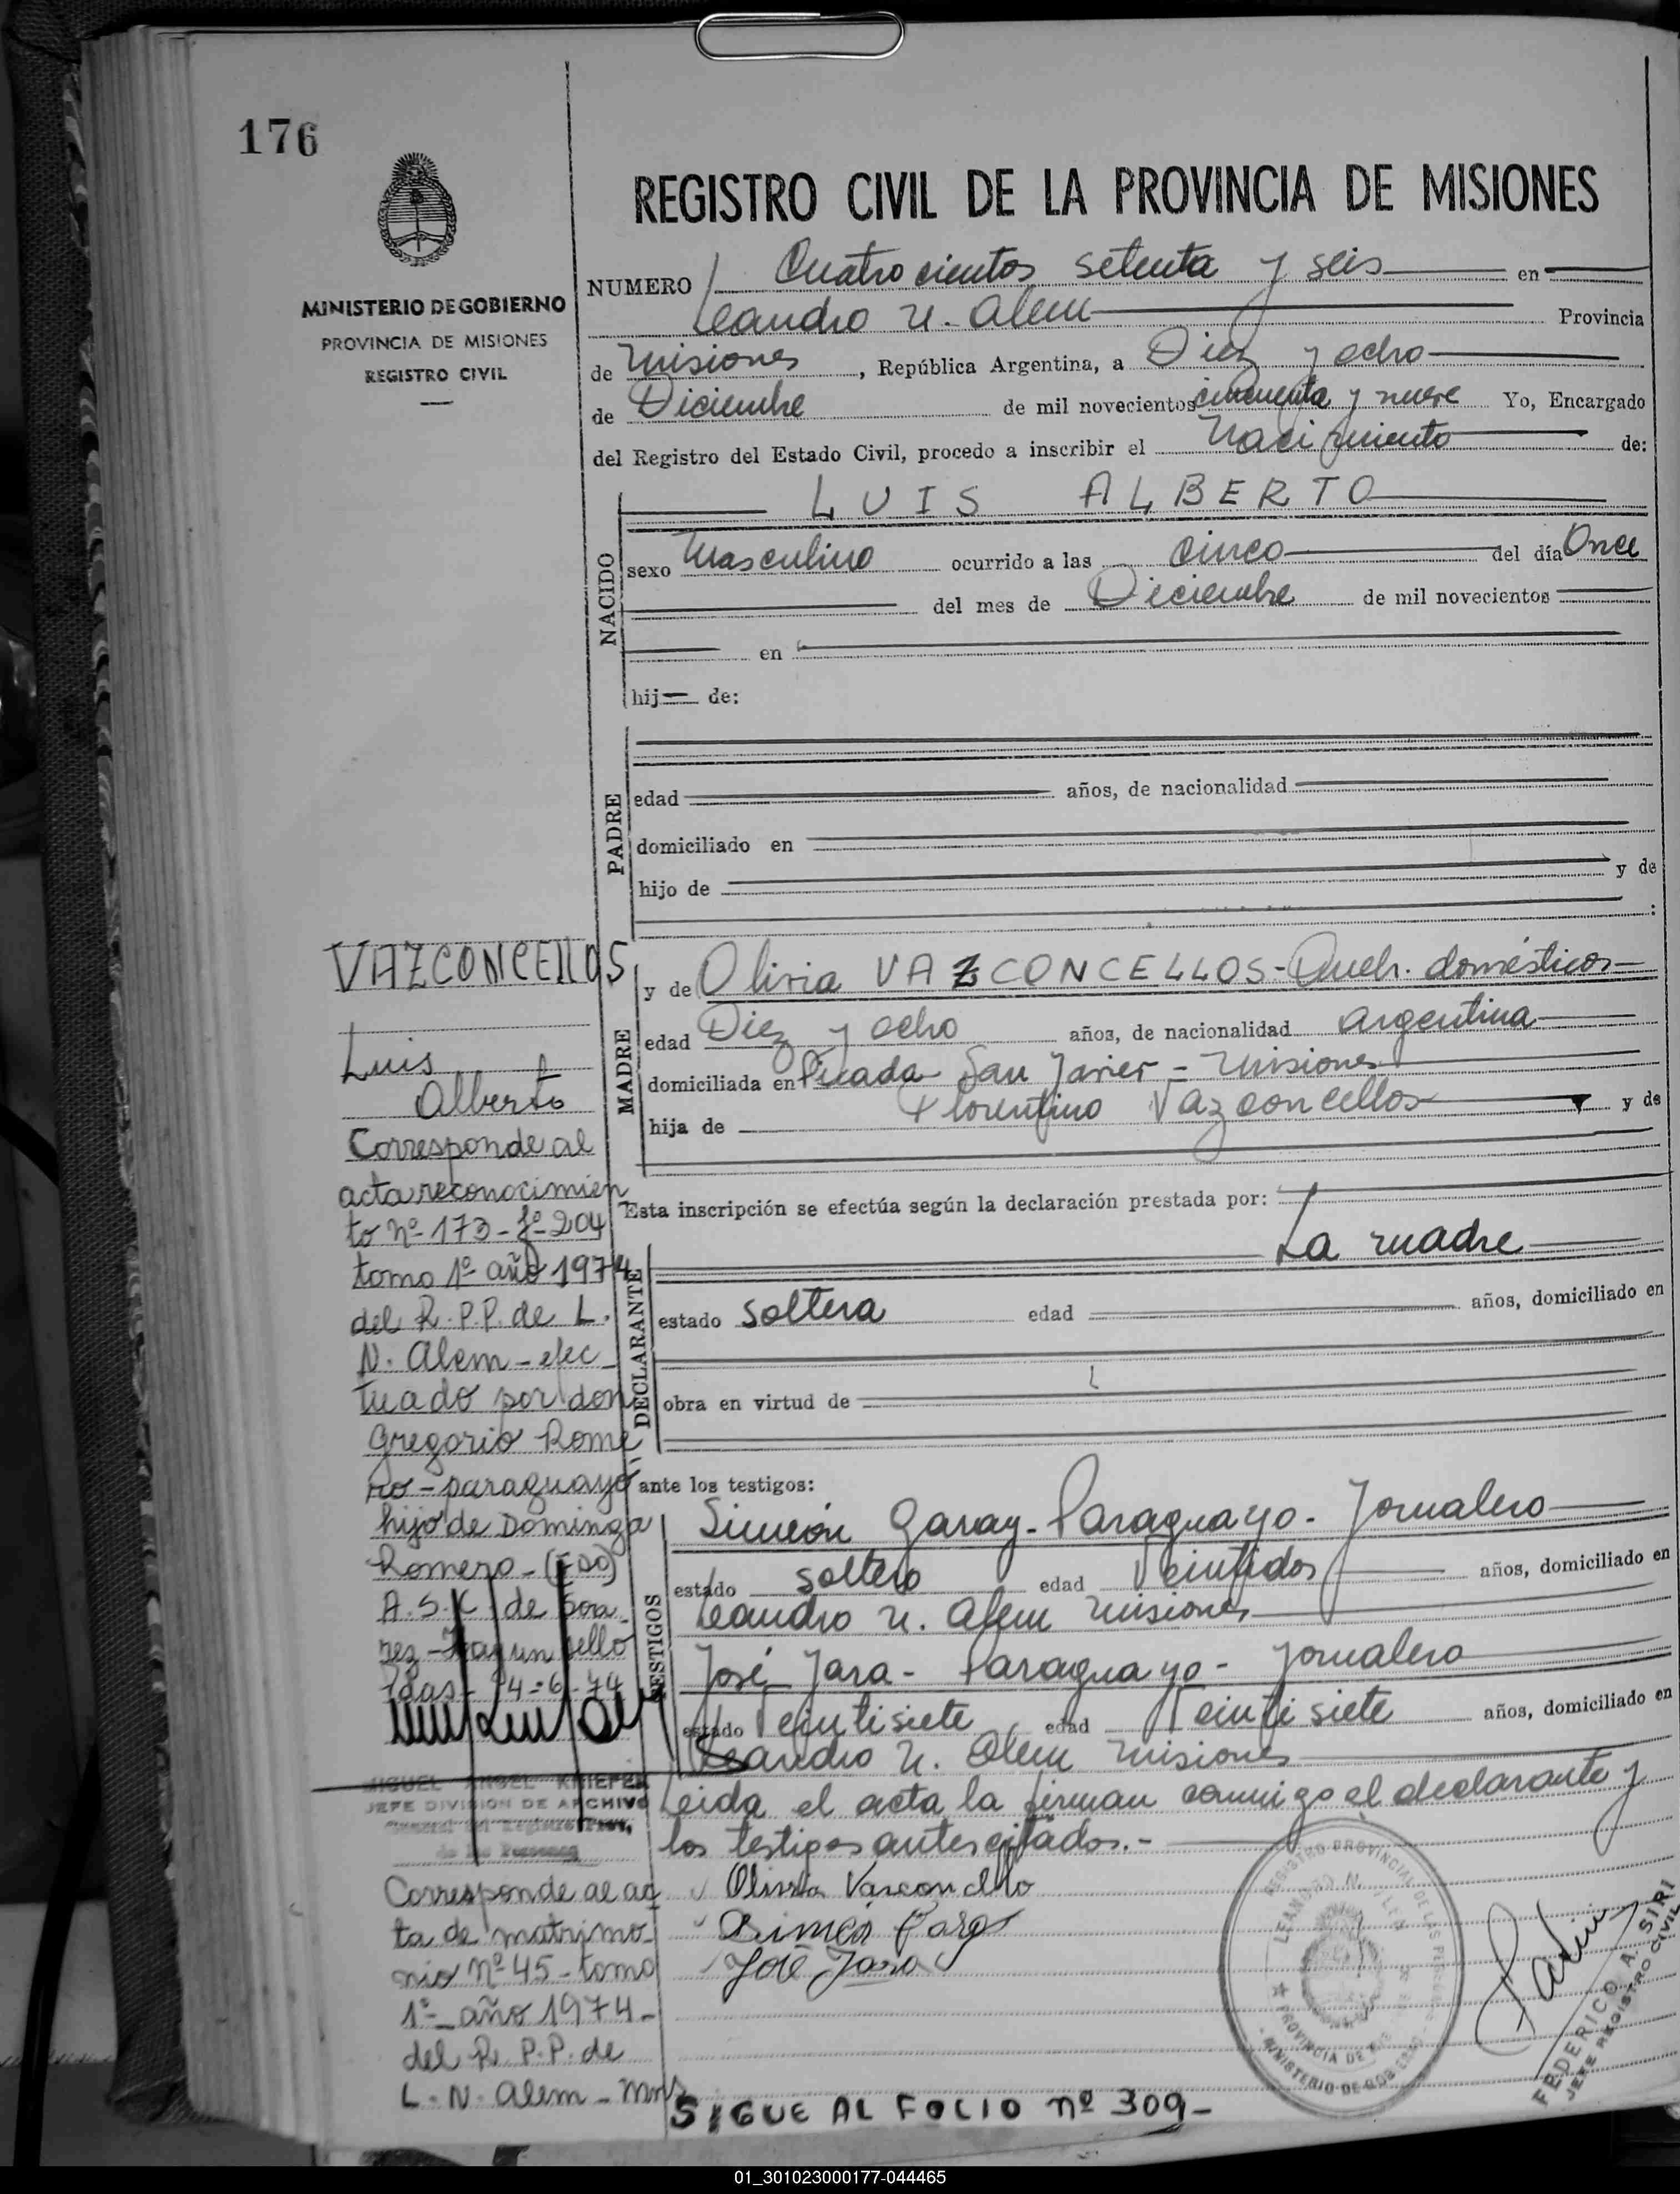 176
MINISTERIO DE GOBIERNO
PROVINCIA DE MISIONES
REGISTRO CIVIL
REGISTRO CIVIL DE LA PROVINCIA DE MISIONES
NUMERO Cuatrocientos setenta y seis en
Leandro N. Alem Provincia
de Misiones, República Argentina, a Diez y ocho
de Diciembre de mil novecientos cincuenta y nueve Yo, Encargado
del Registro del Estado Civil, procedo a inscribir el Nacimiento de:
NACIDO
LUIS ALBERTO
sexo Masculino ocurrido a las cinco del día Once
del mes de Diciembre de mil novecientos
en
hij de:
PADRE
edad años, de nacionalidad
domiciliado en
hijo de y de
:
MADRE
y de Oliria VAZCONCELLOS - Queh. domésticos
edad Diez y ocho años, de nacionalidad argentina
domiciliada en Picada San Javier - Misiones
hija de Florentino Vazconcellos y de
Esta inscripción se efectúa según la declaración prestada por:
DECLARANTE
La madre
estado soltera edad años, domiciliado en
obra en virtud de
ante los testigos:
TESTIGOS
Simeón Garay - Paraguayo - Jornalero
estado soltero edad Veintidos años, domiciliado en
Leandro N. Alem Misiones
José Jara - Paraguayo - Jornalero
estado Veintisiete edad Veintisiete años, domiciliado en
Leandro N. Alem Misiones
Leida el acta la firman conmigo el declarante y
los testigos antes citados.-
José Jara
VAZCONCELLOS
Luis
Alberto
Corresponde al
acta reconocimien
to nº 173 - fº 204
tomo 1º año 1974
del R. P. P. de L.
N. Alem - efec
tuado por don
Gregorio Rome
ro - paraguayo
hijo de Dominga
Romero - (Fdo)
A. S. K. de Soa
rez - Hay un sello
Pdas - 4-6-74
MIGUEL ANGEL KNIEFER
JEFE DIVISION DE ARCHIVO
General del Registro Prov.
de las Personas
Corresponde al ac
ta de matrimo
nio nº 45 - tomo
1º año 1974 -
del R. P. P. de
L. N. Alem - Mns
REGISTRO PROVINCIAL DE LAS PERSONAS
LEANDRO N. ALEM
PROVINCIA DE
MINISTERIO DE GOBIERNO
FEDERICO A. SIRI
JEFE REGISTRO CIVIL
SIGUE AL FOLIO nº 309-
01_301023000177-044465